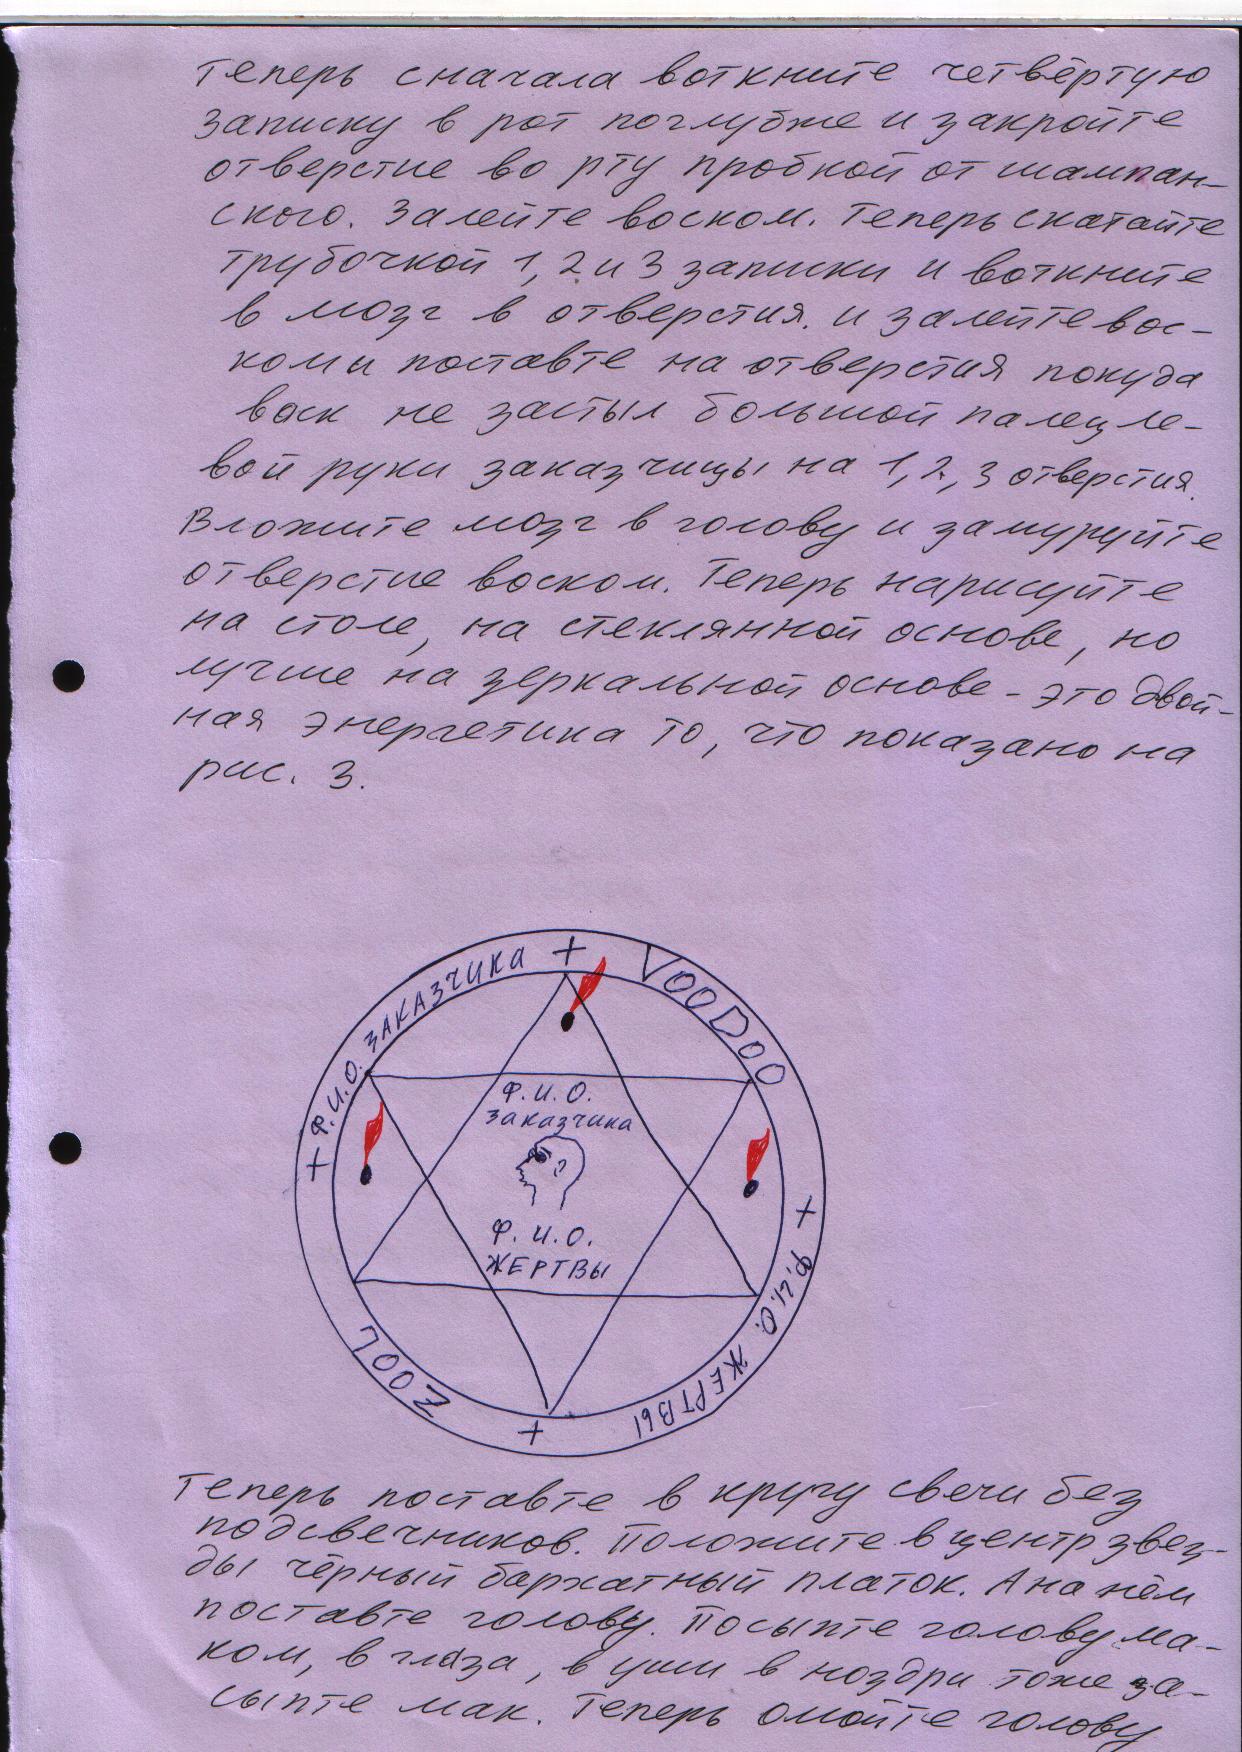 Теперь сначала воткните четвёртую
записку в рот поглубже и закройте
отверстие во рту пробкой от шампан-
ского. Залейте воском. Теперь скатайте
трубочкой 1, 2 и 3 записки и воткните
в мозг в отверстия. и залейте вос-
ком и поставте на отверстия покуда
воск не застыл большой палец ле-
вой руки заказчицы на 1, 2, 3 отверстия.
Вложите мозг в голову и замуруйте
отверстие воском. Теперь нарисуйте
на столе, на стеклянной основе, но
лучше на зеркальной основе - это двой-
ная энергетика то, что показано на
рис. 3.
+ Ф.И.О. ЗАКАЗЧИКА + VOODOO
Ф.И.О.
Заказчика
Ф.И.О.
ЖЕРТВЫ
+ Ф.И.О. ЖЕРТВЫ
+ ZOOL
Теперь поставте в кругу свечи без
подсвечников. Положите в центр звез-
ды чёрный бархатный платок. А на нём
поставте голову. Посыпте голову ма-
ком, в глаза, в уши в ноздри тоже за-
сыпте мак. Теперь омойте голову